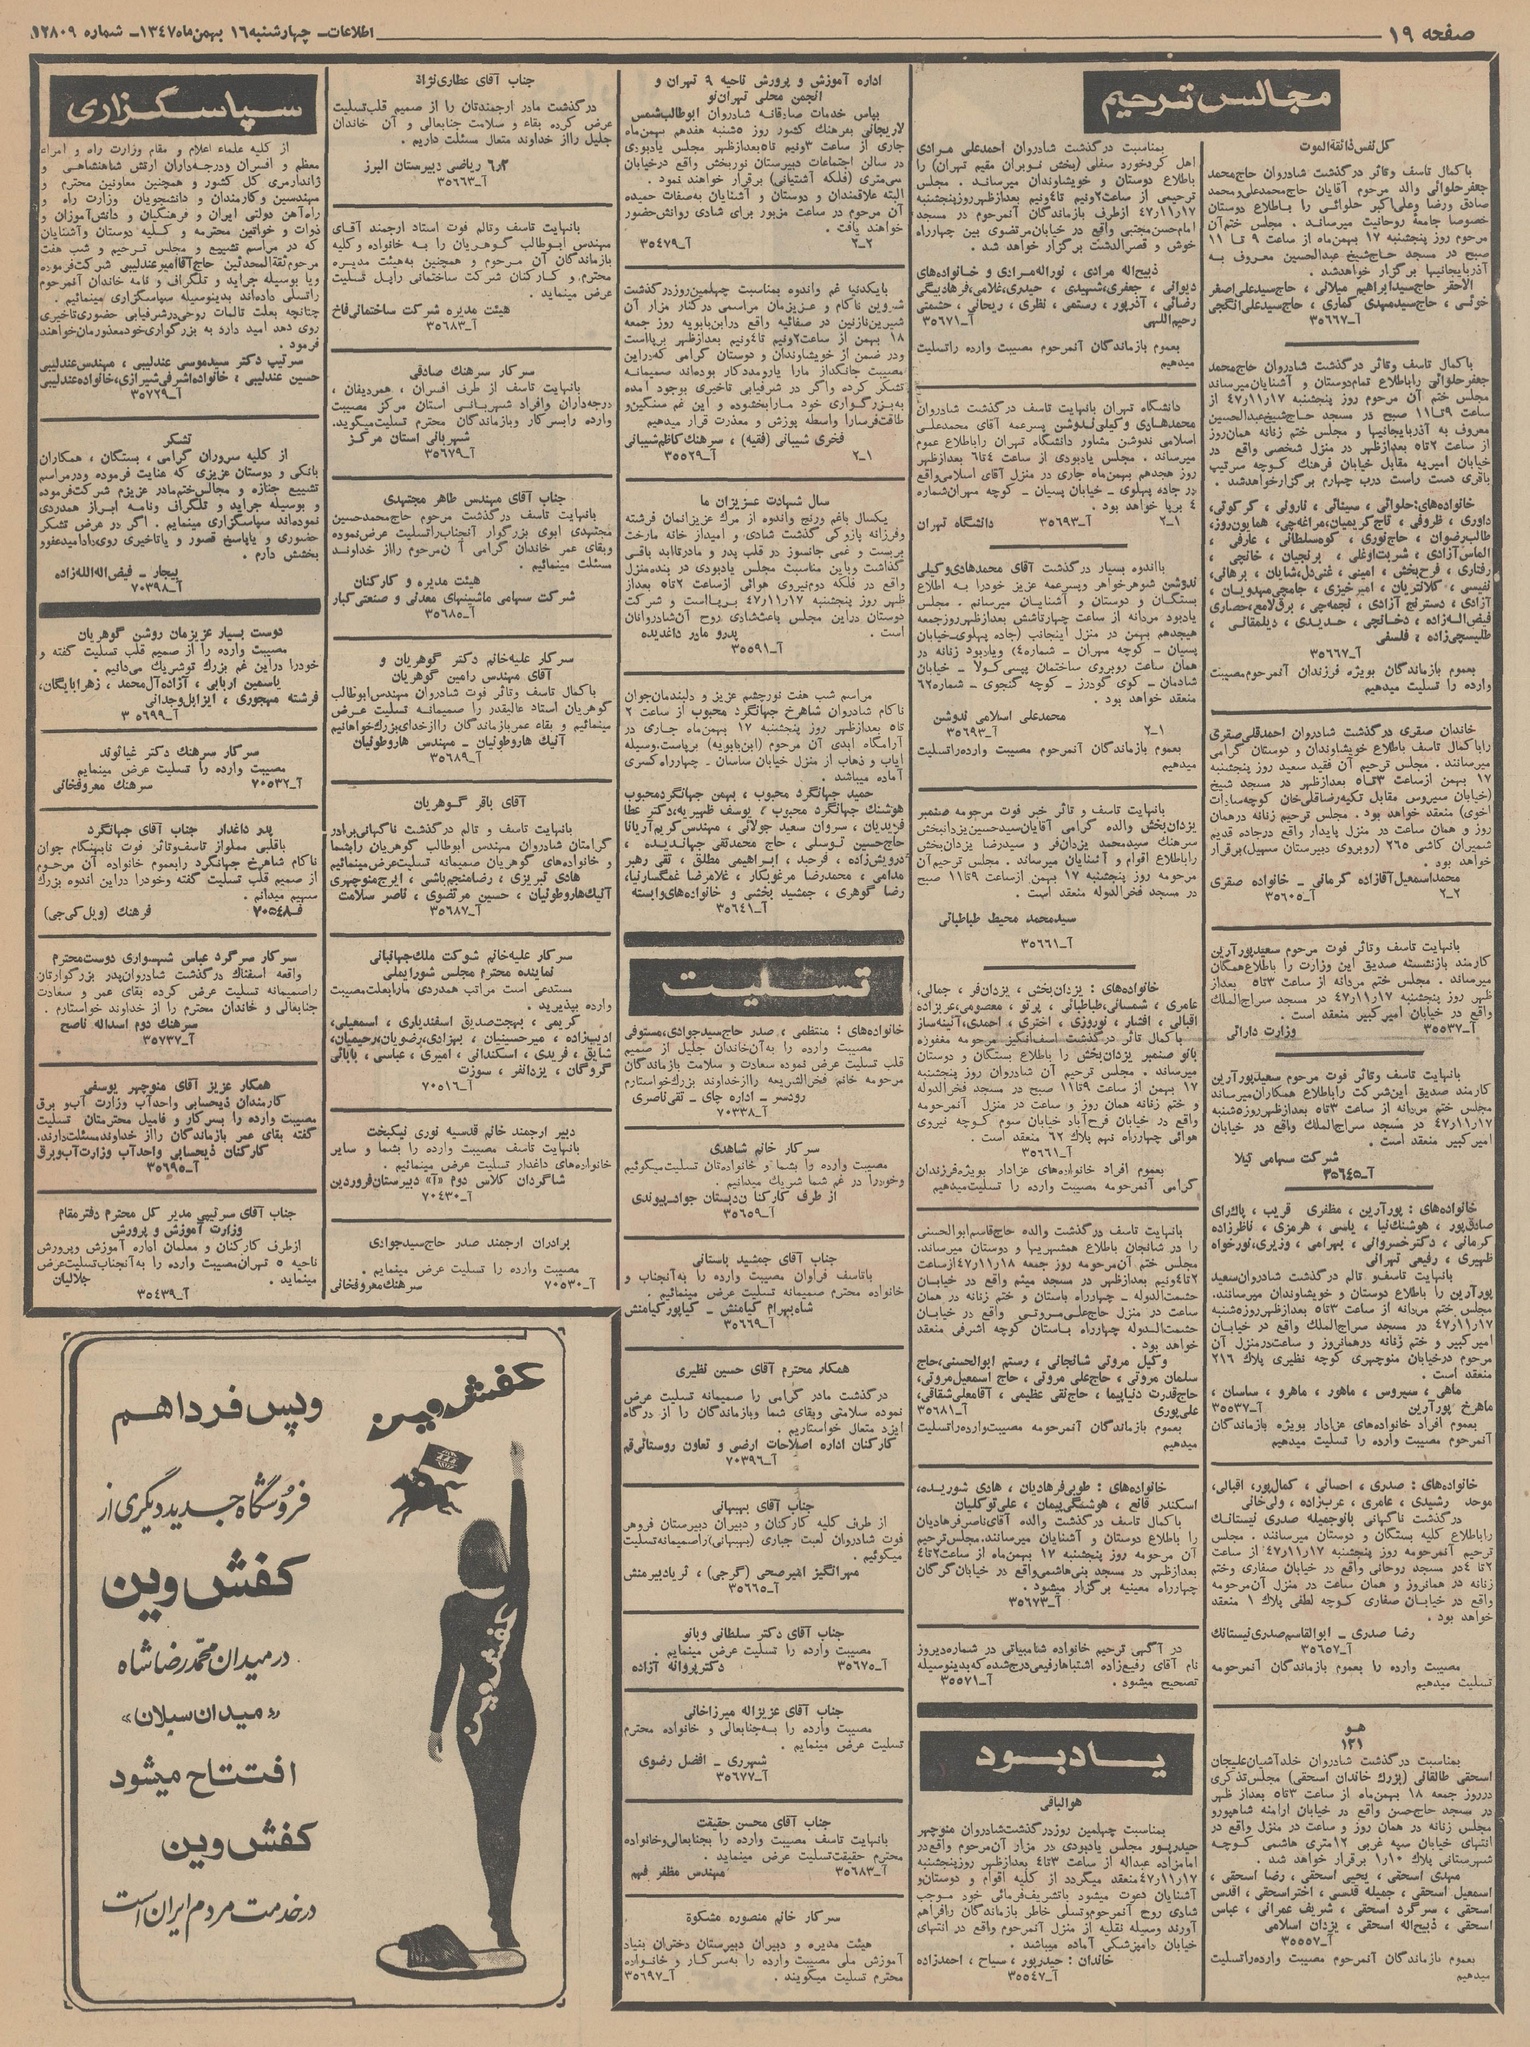 صفحه ۱۹
اطلاعات – چهارشنبه ۱۶ بهمن ماه ۱۳۴۷ – شماره ۱۲۸۰۹
مجالس ترحیم
کل نفس ذائقة الموت
باکمال تاسف وتاثر درگذشت شادروان حاج محمد
جعفر حلوائی والد مرحوم آقایان حاج محمدعلی ومحمد
صادق ورضا وعلی‌اکبر حلوائی را باطلاع دوستان
خصوصا جامعه روحانیت میرساند . مجلس ختم آن
مرحوم روز پنجشنبه ۱۷ بهمن‌ماه از ساعت ۹ تا ۱۱
صبح در مسجد حاج‌شیخ عبدالحسین معروف به
آذربایجانیها برگزار خواهدشد .
الاحقر حاج سیدابراهیم میلانی ، حاج سیدعلی‌اصغر
خوئی ، حاج سیدمهدی گماری ، حاج سیدعلی‌انگجی
آ–۳۵۶۶۷
باکمال تاسف وتاثر درگذشت شادروان حاج محمد
جعفر حلوائی را باطلاع تمام دوستان و آشنایان میرساند
مجلس ختم آن مرحوم روز پنجشنبه ۴۷٫۱۱٫۱۷ از
ساعت ۹ تا ۱۱ صبح در مسجد حاج شیخ عبدالحسین
معروف به آذربایجانیها و مجلس ختم زنانه همان‌روز
از ساعت ۲ تا ۵ بعدازظهر در منزل شخصی واقع در
خیابان امیریه مقابل خیابان فرهنگ کوچه سرتیپ
باقری دست راست درب چهارم برگزار خواهد شد .
خانواده‌های: حلوائی ، سینائی ، نارونی ، گرگوتی،
داوری ، ظروفی ، تاج کریمیان، مراغه‌چی، همایون‌روز،
طالب‌رضوان ، حاج نوری ، کوه‌سلطانی ، عارفی ،
الماس‌آزادی ، شربت‌اوغلی ، برنجیان ، خانچی ،
رفتاری ، فرح‌بخش ، امینی ، غنی‌دل، شایان ، برهانی،
نفیسی ، کلانتریان ، امیرخیزی ، جامچی، مهدویان ،
آزادی ، دسترنج آزادی ، نجمه‌چی ، برق‌لامع، حصاری
فیض‌اله‌زاده ، دخانچی ، حدیدی ، دیلمقانی ،
طلیسچی‌زاده ، فلسفی
آ–۳۵۶۶۷
بعموم بازماندگان بویژه فرزندان آنمرحوم مصیبت
وارده را تسلیت میدهیم
خاندان صفری درگذشت شادروان احمدقلی صفری
را باکمال تاسف باطلاع خویشاوندان و دوستان گرامی
میرسانند . مجلس ترحیم آن فقید سعید روز پنجشنبه
۱۷ بهمن ازساعت ۳ تا ۵ بعدازظهر در مسجد شیخ
(خیابان سیروس مقابل تکیه رضاقلی خان کوچه سادات
اخوی) منعقد خواهد بود . مجلس ترحیم زنانه درهمان
روز و همان ساعت در منزل پایدار واقع درجاده قدیم
شمیران کاشی ۲۶۵ (روبروی دبیرستان سهیل) برقرار
خواهد بود .
محمداسمعیل آقازاده کرمانی – خانواده صفری
۲–۲
آ–۳۵۶۰۵
بانهایت تاسف وتاثر فوت مرحوم سعید پورآرین
کارمند بازنشسته صدیق این وزارت را باطلاع همگان
میرساند . مجلس ختم مردانه از ساعت ۳ تا ۵ بعداز
ظهر روز پنجشنبه ۴۷٫۱۱٫۱۷ در مسجد سراج‌الملک
واقع در خیابان امیرکبیر منعقد است .
آ–۳۵۵۳۷
وزارت دارائی
بانهایت تاسف وتاثر فوت مرحوم سعیدپورآرین
کارمند صدیق این‌شرکت راباطلاع همکاران میرساند
مجلس ختم مردانه از ساعت ۳ تا ۵ بعدازظهر روز ۵ شنبه
۴۷٫۱۱٫۱۷ در مسجد سراج‌الملک واقع در خیابان
امیرکبیر منعقد است .
شرکت سهامی تیلا
آ–۳۵۶۴۵
خانواده‌های : پورآرین ، مظفری قریب ، پاک‌رای
صادق‌پور ، هوشنگ‌نیا ، یاسی ، هرمزی ، ناظرزاده
کرمانی ، دکترخسروانی ، بهرامی ، وزیری، نورخواه
ظهیری ، رفیعی تهرانی
بانهایت تاسف‌و تالم درگذشت شادروان سعید
پورآرین را باطلاع دوستان و خویشاوندان میرسانند.
مجلس ختم مردانه از ساعت ۳ تا ۵ بعدازظهر روز ۵ شنبه
۴۷٫۱۱٫۱۷ در مسجد سراج‌الملک واقع در خیابان
امیرکبیر و ختم زنانه درهمانروز و ساعت درمنزل آن
مرحوم درخیابان منوچهری کوچه نظیری پلاک ۲۱۶
منعقد است .
ماهی ، سیروس ، ماهور ، ماهرو ، ساسان ،
ماهرخ پورآرین
آ–۳۵۵۳۷
بعموم افراد خانواده‌های عزادار بویژه بازماندگان
آنمرحوم مصیبت وارده را تسلیت میدهیم
خانواده‌های : صدری ، احسانی ، کمال‌پور، اقبالی،
موحد رشیدی ، عامری ، عرب‌زاده ، ولی‌خانی
درگذشت ناگهانی بانوجمیله صدری نیستانک
راباطلاع کلیه بستگان و دوستان میرسانند . مجلس
ترحیم آنمرحومه روز پنجشنبه ۴۷٫۱۱٫۱۷ از ساعت
۲ تا ۴ در مسجد روحانی واقع در خیابان صفاری وختم
زنانه در همانروز و همان ساعت در منزل آن‌مرحومه
واقع در خیابان صفاری کوچه لطفی پلاک ۱ منعقد
خواهد بود .
رضا صدری – ابوالقاسم صدری نیستانک
آ–۳۵۶۵۷
مصیبت وارده را بعموم بازماندگان آنمرحومه
تسلیت میدهیم
هو
۱۲۱
بمناسبت درگذشت شادروان خلدآشیان علیجان
اسحقی طالقانی (بزرگ خاندان اسحقی) مجلس تذکری
درروز جمعه ۱۸ بهمن‌ماه از ساعت ۳ تا ۵ بعداز ظهر
در مسجد حاج حسن واقع در خیابان ارامنه شاهپورو
مجلس زنانه در همان روز و ساعت در منزل واقع در
انتهای خیابان سپه غربی ۱۲ متری هاشمی کوچه
شهرستانی پلاک ۱٫۱۰ برقرار خواهد شد .
مهدی اسحقی ، یحیی اسحقی ، رضا اسحقی ،
اسمعیل اسحقی ، جمیله قدسی ، اختراسحقی ، اقدس
اسحقی ، سرگرد اسحقی ، شریف عمرانی ، عباس
اسحقی ، ذبیح‌اله اسحقی ، یزدان اسلامی
آ–۳۵۵۵۷
بعموم بازماندگان آنمرحوم مصیبت وارده‌راتسلیت
میدهیم
بمناسبت درگذشت شادروان احمدعلی مرادی
اهل کردخورد سفلی (بخش نوبران مقیم تهران) را
باطلاع دوستان و خویشاوندان میرساند . مجلس
ترحیمی از ساعت ۲ونیم تا ۴ونیم بعدازظهر روزپنجشنبه
۴۷٫۱۱٫۱۷ ازطرف بازماندگان آنمرحوم در مسجد
امام‌حسن مجتبی واقع در خیابان مرتضوی بین چهارراه
خوش و قصرالدشت برگزار خواهد شد .
ذبیح‌اله مرادی ، نوراله مرادی و خانواده‌های
دیوانی ، جعفری، شهیدی ، حیدری، غلامی، فرهادبیگی
رضائی ، آذرپور ، رستمی ، نظری ، ریحانی ، حشمتی
رحیم‌اللهی
آ–۳۵۶۷۱
بعموم بازماندگان آنمرحوم مصیبت وارده راتسلیت
میدهیم
دانشگاه تهران بانهایت تاسف درگذشت شادروان
محمدهادی وکیلی ندوشن پسرعمه آقای محمدعلی
اسلامی ندوشن مشاور دانشگاه تهران راباطلاع عموم
میرساند . مجلس یادبودی از ساعت ۴ تا ۶ بعدازظهر
روز هجدهم بهمن‌ماه جاری در منزل آقای اسلامی واقع
در جاده پهلوی – خیابان پسیان – کوچه مهران شماره
۴ برپا خواهد بود .
۲–۱
آ–۳۵۶۹۳
دانشگاه تهران
بااندوه بسیار درگذشت آقای محمدهادی وکیلی
ندوشن شوهرخواهر وپسرعمه عزیز خودرا به اطلاع
بستگان و دوستان و آشنایان میرسانم . مجلس
یادبود مردانه از ساعت چهارتاشش بعدازظهر روزجمعه
هیجدهم بهمن در منزل اینجانب (جاده پهلوی–خیابان
پسیان – کوچه مهران – شماره ۴) ویادبود زنانه در
همان ساعت روبروی ساختمان پپسی‌کولا – خیابان
شادمان – کوی گودرز – کوچه گنجوی – شماره ۶۲
منعقد خواهد بود .
محمدعلی اسلامی ندوشن
۲–۱
آ–۳۵۶۹۳
بعموم بازماندگان آنمرحوم مصیبت وارده‌راتسلیت
میدهیم
بانهایت تاسف و تاثر خبر فوت مرحومه صنمبر
یزدان‌بخش والده گرامی آقایان سیدحسین یزدانبخش
سرهنگ سیدمحمد یزدان‌فر و سیدرضا یزدان‌بخش
راباطلاع اقوام و آشنایان میرساند . مجلس ترحیم آن
مرحومه روز پنجشنبه ۱۷ بهمن ازساعت ۹ تا ۱۱ صبح
در مسجد فخرالدوله منعقد است .
سیدمحمد محیط طباطبائی
آ–۳۵۶۶۱
خانواده‌های : یزدان‌بخش ، یزدان‌فر ، جمالی،
عامری ، شمسائی، طباطبائی ، پرتو ، معصومی، عربزاده
اقبالی ، افشار ، نوروزی ، اختری ، احمدی، آئینه‌ساز
باکمال تاثر درگذشت اسف‌انگیز مرحومه مغفوره
بانو صنمبر یزدان‌بخش را باطلاع بستگان و دوستان
میرساند . مجلس ترحیم آن شادروان روز پنجشنبه
۱۷ بهمن از ساعت ۹ تا ۱۱ صبح در مسجد فخرالدوله
و ختم زنانه همان روز و ساعت در منزل آنمرحومه
واقع در خیابان فرح‌آباد خیابان سوم کوچه نیروی
هوائی چهارراه نهم پلاک ۶۲ منعقد است .
آ–۳۵۶۶۱
بعموم افراد خانواده‌های عزادار بویژه فرزندان
گرامی آنمرحومه مصیبت وارده را تسلیت میدهیم
بانهایت تاسف درگذشت والده حاج قاسم ابوالحسنی
را در شانجان باطلاع همشهریها و دوستان میرساند.
مجلس ختم آن‌مرحومه روز جمعه ۴۷٫۱۱٫۱۸ ازساعت
۲ تا ۴ونیم بعدازظهر در مسجد میثم واقع در خیابان
حشمت‌الدوله – چهارراه باستان و ختم زنانه در همان
ساعت در منزل حاج علی مروتی واقع در خیابان
حشمت‌الدوله چهارراه باستان کوچه اشرفی منعقد
خواهد بود .
وکیل مروتی شانجانی ، رستم ابوالحسنی، حاج
سلمان مروتی ، حاج علی مروتی ، حاج اسمعیل مروتی،
حاج قدرت دنیاپیما ، حاج تقی عظیمی ، آقامعلی شقاقی،
علی پوری
آ–۳۵۶۸۱
بعموم بازماندگان آنمرحومه مصیبت وارده راتسلیت
میدهیم
خانواده‌های : طوبی فرهادیان ، هادی شوریده،
اسکندر قانع ، هوشنگ پیمان ، علی توکلیان
باکمال تاسف درگذشت والده آقای ناصر فرهادیان
را باطلاع دوستان و آشنایان میرسانند. مجلس ترحیم
آن مرحومه روز پنجشنبه ۱۷ بهمن‌ماه از ساعت ۲ تا ۴
بعدازظهر در مسجد بنی‌هاشمی واقع در خیابان گرگان
چهارراه معینیه برگزار میشود .
آ–۳۵۶۷۳
در آگهی ترحیم خانواده شنامبیاتی در شماره دیروز
نام آقای رفیع‌زاده اشتباها رفیعی درج شده که بدینوسیله
تصحیح میشود .
آ–۳۵۵۷۱
یادبود
هوالباقی
بمناسبت چهلمین روز درگذشت شادروان منوچهر
حیدرپور مجلس یادبودی در مزار آن مرحوم واقع در
امامزاده عبداله از ساعت ۳ تا ۴ بعدازظهر روزپنجشنبه
۴۷٫۱۱٫۱۷ منعقد میگردد از کلیه اقوام و دوستان و
آشنایان دعوت میشود باتشریف‌فرمائی خود موجب
شادی روح آنمرحوم وتسلی خاطر بازماندگان رافراهم
آورند وسیله نقلیه از منزل آنمرحوم واقع در انتهای
خیابان دامپزشکی آماده میباشد .
خاندان : حیدرپور ، سیاح ، احمدزاده
آ–۳۵۵۴۷
اداره آموزش و پرورش ناحیه ۹ تهران و
انجمن محلی تهران‌نو
بپاس خدمات صادقانه شادروان ابوطالب شمس
لاریجانی بفرهنگ کشور روز ۵ شنبه هفدهم بهمن‌ماه
جاری از ساعت ۳ونیم تا ۵ بعدازظهر مجلس یادبودی
در سالن اجتماعات دبیرستان نوربخش واقع درخیابان
سی‌متری (فلکه آشتیانی) برقرار خواهند نمود .
البته علاقمندان و دوستان و آشنایان به‌صفات حمیده
آن مرحوم در ساعت مزبور برای شادی روانش حضور
خواهند یافت .
۲–۲
آ–۳۵۴۷۹
بایکدنیا غم واندوه بمناسبت چهلمین روز درگذشت
شروین ناکام و عزیزمان مراسمی درکنار مزار آن
شیرین نازنین در صفائیه واقع در ابن‌بابویه روز جمعه
۱۸ بهمن از ساعت ۲ونیم تا ۴ونیم بعدازظهر برپاست
ودر ضمن از خویشاوندان و دوستان گرامی که دراین
مصیبت جانگداز مارا یارومددکار بوده‌اند صمیمانه
تشکر کرده واگر در شرفیابی تاخیری بوجود آمده
به‌بزرگواری خود مارا بخشوده و این غم سنگین و
طاقت‌فرسارا واسطه پوزش و معذرت قرار میدهیم
فخری شیبانی (فقیه) ، سرهنگ کاظم شیبانی
۲–۱
آ–۳۵۵۲۹
سال شهادت عزیزان ما
یکسال باغم ورنج واندوه از مرگ عزیزانمان فرشته
وفرزانه پازوکی گذشت شادی و امیداز خانه مارخت
بربست و غمی جانسوز در قلب پدر و مادرتاابد باقی
گذاشت وباین مناسبت مجلس یادبودی در بنده منزل
واقع در فلکه دوم نیروی هوائی ازساعت ۲ تا ۵ بعداز
ظهر روز پنجشنبه ۴۷٫۱۱٫۱۷ برپااست و شرکت
دوستان دراین مجلس باعث شادی روح آن شادروانان
است .
پدرو مادر داغدیده
آ–۳۵۵۹۱
مراسم شب هفت نورچشم عزیز و دلبندمان جوان
ناکام شادروان شاهرخ جهانگرد محبوب از ساعت ۲
تا ۵ بعدازظهر روز پنجشنبه ۱۷ بهمن‌ماه جاری در
آرامگاه ابدی آن مرحوم (ابن‌بابویه) برپاست. وسیله
ایاب و ذهاب از منزل خیابان ساسان – چهارراه کسری
آماده میباشد .
حمید جهانگرد محبوب ، بهمن جهانگرد محبوب
هوشنگ جهانگرد محبوب ، یوسف ظهیریه، دکتر عطا
فریدیان ، سروان سعید جولائی ، مهندس کریم آریانا
حاج حسین توسلی ، حاج محمدتقی جهاندیده ،
درویش‌زاده ، فرحبد ، ابراهیمی مطلق ، تقی رهبر
مدامی ، محمدرضا مرغوبکار ، غلامرضا غمگسارنیا،
رضا گوهری ، جمشید بخشی و خانواده‌های وابسته
آ–۳۵۶۴۱
تسلیت
خانواده‌های : منتظمی ، صدر حاج سیدجوادی، مستوفی
مصیبت وارده را به‌آن خاندان جلیل از صمیم
قلب تسلیت عرض نموده سعادت و سلامت بازماندگان
مرحومه خانم فخرالشریعه را از خداوند بزرگ خواستارم
رودسر – اداره چای – تقی ناصری
آ–۷۰۳۳۸
سرکار خانم شاهدی
مصیبت وارده را بشما و خانواده‌تان تسلیت میگوئیم
وخودرا در غم شما شریک میدانیم .
از طرف کارکنان دبستان جواد–پیوندی
آ–۳۵۶۵۹
جناب آقای جمشید باستانی
باتاسف فراوان مصیبت وارده را به‌آنجناب و
خانواده محترم صمیمانه تسلیت عرض مینمائیم .
شاه‌بهرام کیامنش – کیاپور کیامنش
آ–۳۵۶۶۹
همکار محترم آقای حسین نظیری
درگذشت مادر گرامی را صمیمانه تسلیت عرض
نموده سلامتی وبقای شما وبازماندگان را از درگاه
ایزد متعال خواستاریم .
کارکنان اداره اصلاحات ارضی و تعاون روستائی قم
آ–۷۰۳۹۶
جناب آقای بهبهانی
از طرف کلیه کارکنان و دبیران دبیرستان فروهر
فوت شادروان لعبت جباری (بهبهانی) راصمیمانه تسلیت
میگوئیم .
مهرانگیز امیرصحی (گرجی) ، ثریا دبیرمنش
آ–۳۵۶۶۵
جناب آقای دکتر سلطانی وبانو
مصیبت وارده را تسلیت عرض مینمایم .
آ–۳۵۶۷۵
دکتر پروانه آزاده
جناب آقای عزیزاله میرزاخانی
مصیبت وارده را به‌جنابعالی و خانواده محترم
تسلیت عرض مینمایم .
شهرری – افضل رضوی
آ–۳۵۶۷۷
جناب آقای محسن حقیقت
بانهایت تاسف مصیبت وارده را بجنابعالی وخانواده
محترم حقیقت تسلیت عرض مینماید .
آ–۳۵۶۸۳
مهندس مظفر فهیم
سرکار خانم منصوره مشکوة
هیئت مدیره و دبیران دبیرستان دختران بنیاد
آموزش ملی مصیبت وارده را به‌سرکار و خانواده
محترم تسلیت میگویند .
آ–۳۵۶۹۷
جناب آقای عطاری‌نژاد
درگذشت مادر ارجمندتان را از صمیم قلب تسلیت
عرض کرده بقاء و سلامت جنابعالی و آن خاندان
جلیل رااز خداوند متعال مسئلت داریم .
۶٫۳ ریاضی دبیرستان البرز
آ–۳۵۶۶۳
بانهایت تاسف وتالم فوت استاد ارجمند آقای
مهندس ابوطالب گوهریان را به خانواده وکلیه
بازماندگان آن مرحوم و همچنین به‌هیئت مدیره
محترم و کارکنان شرکت ساختمانی رابل تسلیت
عرض مینماید .
هیئت مدیره شرکت ساختمانی فاخ
آ–۳۵۶۸۳
سرکار سرهنگ صادقی
بانهایت تاسف از طرف افسران ، همردیفان ،
درجه‌داران وافراد شهربانی استان مرکز مصیبت
وارده رابسرکار وبازماندگان محترم تسلیت میگوید.
شهربانی استان مرکز
آ–۳۵۶۷۹
جناب آقای مهندس طاهر مجتهدی
بانهایت تاسف درگذشت مرحوم حاج محمدحسین
مجتهدی ابوی بزرگوار آنجناب راتسلیت عرض نموده
وبقای عمر خاندان گرامی آن مرحوم رااز خداوند
مسئلت مینمائیم .
هیئت مدیره و کارکنان
شرکت سهامی ماشینهای معدنی و صنعتی کبار
آ–۳۵۶۸۵
سرکار علیه خانم دکتر گوهریان و
آقای مهندس رامین گوهریان
باکمال تاسف وتاثر فوت شادروان مهندس ابوطالب
گوهریان استاد عالیقدر را صمیمانه تسلیت عرض
مینمائیم و بقاء عمر بازماندگان رااز خدای بزرگ خواهانیم
آنیک هاروطونیان – مهندس هاروطونیان
آ–۳۵۶۸۹
آقای باقر گوهریان
بانهایت تاسف و تالم درگذشت ناگهانی برادر
گرامتان شادروان مهندس ابوطالب گوهریان رابشما
و خانواده‌های گوهریان صمیمانه تسلیت عرض مینمائیم
هادی تبریزی ، رضا منجم‌باشی ، ایرج منوچهری
آنیک هاروطونیان ، حسین مرتضوی ، ناصر سلامت
آ–۳۵۶۸۷
سرکار علیه خانم شوکت ملک جهانبانی
نماینده محترم مجلس شورایملی
مستدعی است مراتب همدردی مارا بعلت مصیبت
وارده بپذیرید .
کریمی ، بهجت صدیق اسفندیاری ، اسمعیلی،
ادیب‌زاده ، میرحسینیان ، بهزادی، رضویان، رحیمیان،
شایق ، فریدی ، اسکندانی ، امیری ، عباسی ، بابائی
گروگان ، یزدانفر ، سوزت
آ–۷۰۵۱۶
دبیر ارجمند خانم قدسیه نوری نیکبخت
بانهایت تاسف مصیبت وارده را بشما و سایر
خانواده‌های داغدار تسلیت عرض مینمائیم .
شاگردان کلاس دوم «آ» دبیرستان فروردین
آ–۷۰۴۳۰
برادران ارجمند صدر حاج سیدجوادی
مصیبت وارده را تسلیت عرض مینمایم .
آ–۷۰۵۳۰
سرهنگ معروفخانی
سپاسگزاری
از کلیه علماء اعلام و مقام وزارت راه و امراء
معظم و افسران ودرجه‌داران ارتش شاهنشاهی و
ژاندارمری کل کشور و همچنین معاونین محترم و
مهندسین و کارمندان و دانشجویان وزارت راه و
راه‌آهن دولتی ایران و فرهنگیان و دانش‌آموزان و
ذوات و خواتین محترمه و کلیه دوستان و آشنایان
که در مراسم تشییع و مجلس ترحیم و شب هفت
مرحوم ثقةالمحدثین حاج آقاامیرعندلیبی شرکت فرموده
ویا بوسیله جراید و تلگراف و نامه خاندان آنمرحوم
راتسلی داده‌اند بدینوسیله سپاسگزاری مینمائیم .
چنانچه بعلت تالمات روحی درشرفیابی حضوری تاخیری
روی دهد امید دارد به بزرگواری خود معذورمان خواهند
فرمود .
سرتیپ دکتر سیدموسی عندلیبی ، مهندس عندلیبی
حسین عندلیبی ، خانواده اشرفی شیرازی، خانواده عندلیبی
آ–۳۵۷۲۹
تشکر
از کلیه سروران گرامی ، بستگان ، همکاران
بانکی و دوستان عزیزی که عنایت فرموده ودرمراسم
تشییع جنازه و مجالس ختم مادر عزیزم شرکت فرموده
و بوسیله جراید و تلگراف ونامه ابراز همدردی
نموده‌اند سپاسگزاری مینمایم . اگر در عرض تشکر
حضوری و یاپاسخ قصور و یاتاخیری روی داد امیدعفوو
بخشش دارم .
بیجار – فیض‌اله‌اله‌زاده
آ–۷۰۳۹۸
دوست بسیار عزیزمان روشن گوهریان
مصیبت وارده را از صمیم قلب تسلیت گفته و
خودرا دراین غم بزرگ توشریک می‌دانیم .
یاسمین اربابی ، آزاده آل‌محمد ، زهرا بایگان،
فرشته مهجوری ، ایزابل وجدانی
آ–۳۵۶۹۹
سرکار سرهنگ دکتر غیاثوند
مصیبت وارده را تسلیت عرض مینمایم
آ–۷۰۵۳۲
سرهنگ معروفخانی
پدر داغدار جناب آقای جهانگرد
باقلبی مملواز تاسف وتاثر فوت نابهنگام جوان
ناکام شاهرخ جهانگرد رابعموم خانواده آن مرحوم
از صمیم قلب تسلیت گفته وخودرا دراین اندوه بزرگ
سهیم میدانم .
ف–۷۰۵۴۸
فرهنگ (ویل‌کی‌جی)
سرکار سرگرد عباس شهسواری دوست محترم
واقعه اسفناک درگذشت شادروان پدر بزرگوارتان
راصمیمانه تسلیت عرض کرده بقای عمر و سعادت
جنابعالی و خاندان محترم را از خداوند خواستارم .
سرهنگ دوم اسداله ناصح
آ–۳۵۷۳۷
همکار عزیز آقای منوچهر یوسفی
کارمندان ذیحسابی واحدآب وزارت آب و برق
مصیبت وارده را بسرکار و فامیل محترمتان تسلیت
گفته بقای عمر بازماندگان رااز خداوند مسئلت دارند.
کارکنان ذیحسابی واحدآب وزارت آب و برق
آ–۳۵۶۹۵
جناب آقای سرتیپی مدیر کل محترم دفتر مقام
وزارت آموزش و پرورش
ازطرف کارکنان و معلمان اداره آموزش وپرورش
ناحیه ۵ تهران مصیبت وارده را به‌آنجناب تسلیت عرض
مینماید .
جلالیان
آ–۳۵۴۳۹
کفش وین
و پس فردا هم
فروشگاه جدید دیگری از
کفش وین
در میدان محمد رضا شاه
«میدان سبلان»
افتتاح میشود
کفش وین
در خدمت مردم ایران است
کفش وین